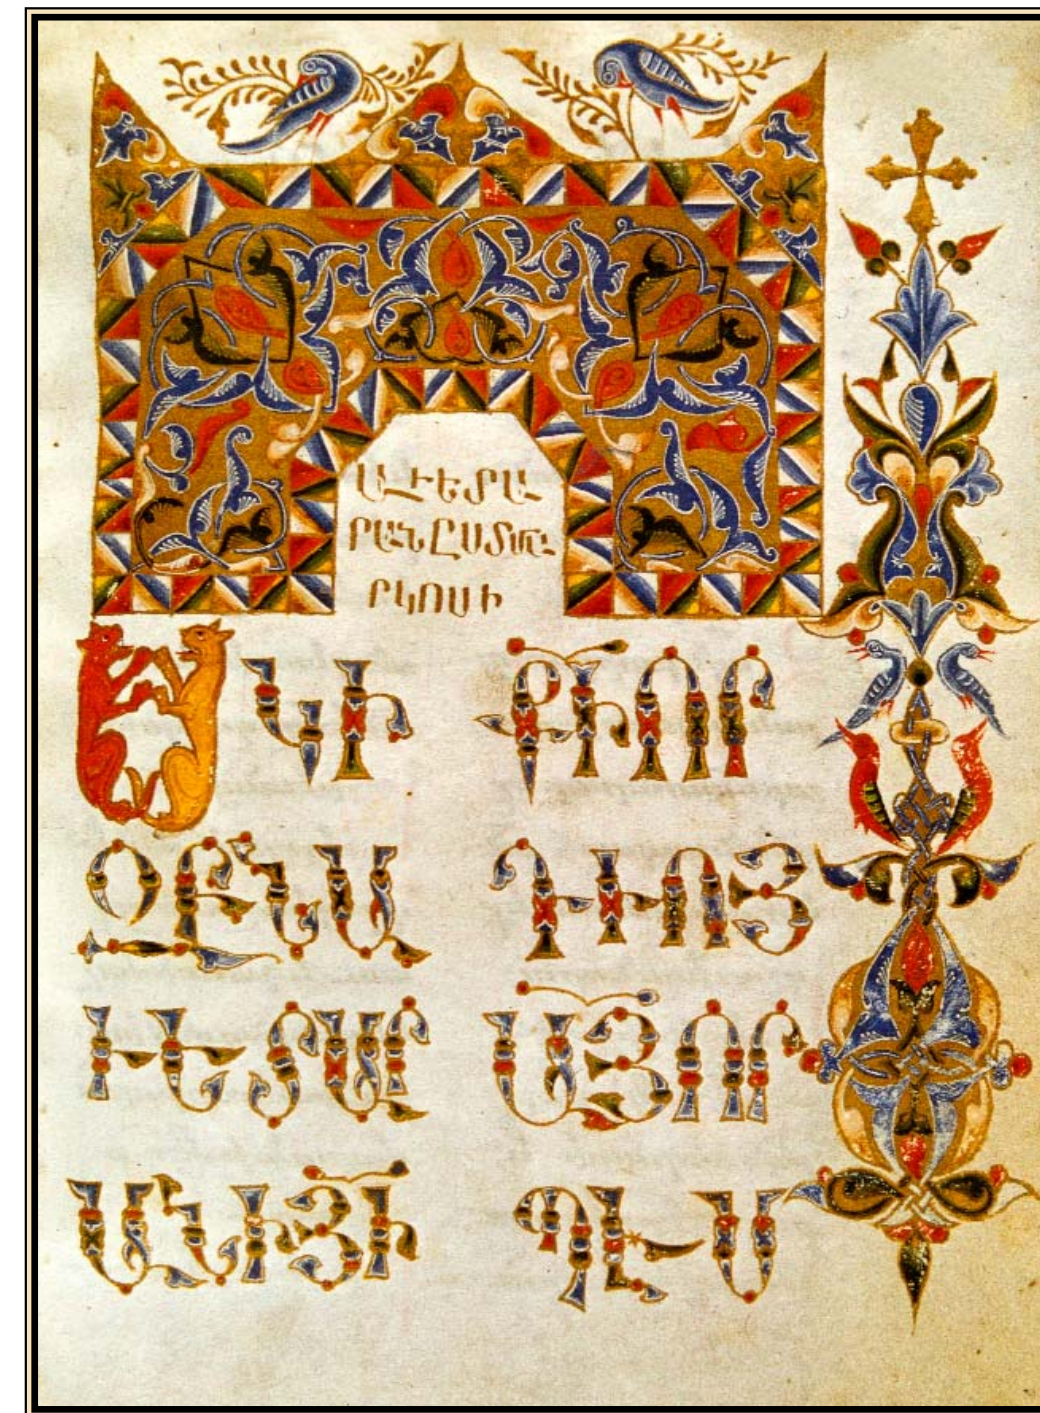 ԱՒԵՏԱ
ՐԱՆԸՍՏՄԱ
ՐԿՈՍԻ
ՍԿԻ
ԶԲՆԱ
ՒԵՏԱՐ
ԱՆԻՅԻ
ՔԻՈՐ
ԴՒՈՅ
ԱՅՈՐ
ՊԷՍ